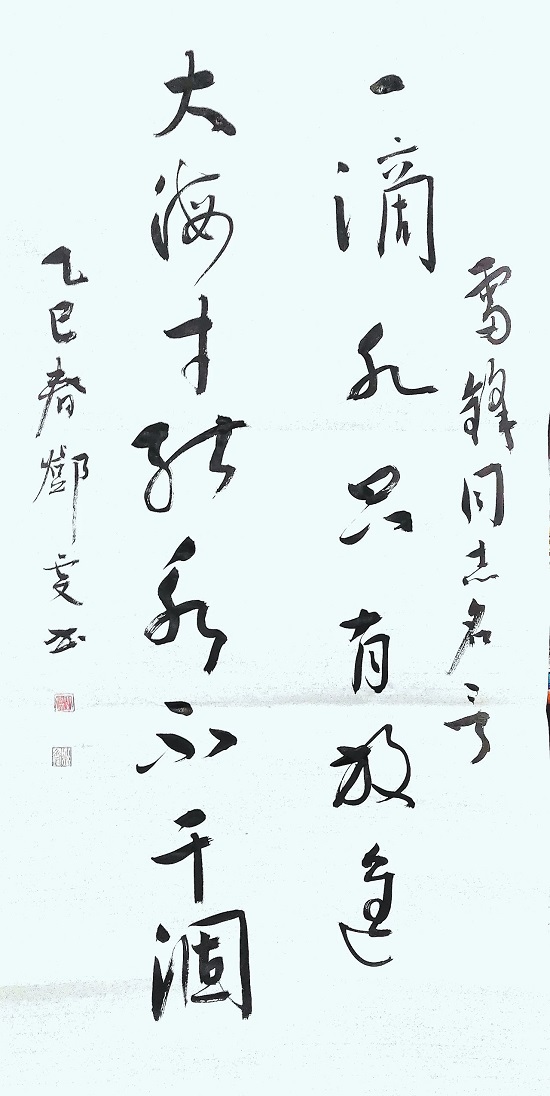 雷鋒同志名言
一滴水只有放進
大海才能永不干涸
乙巳春鄧雯书